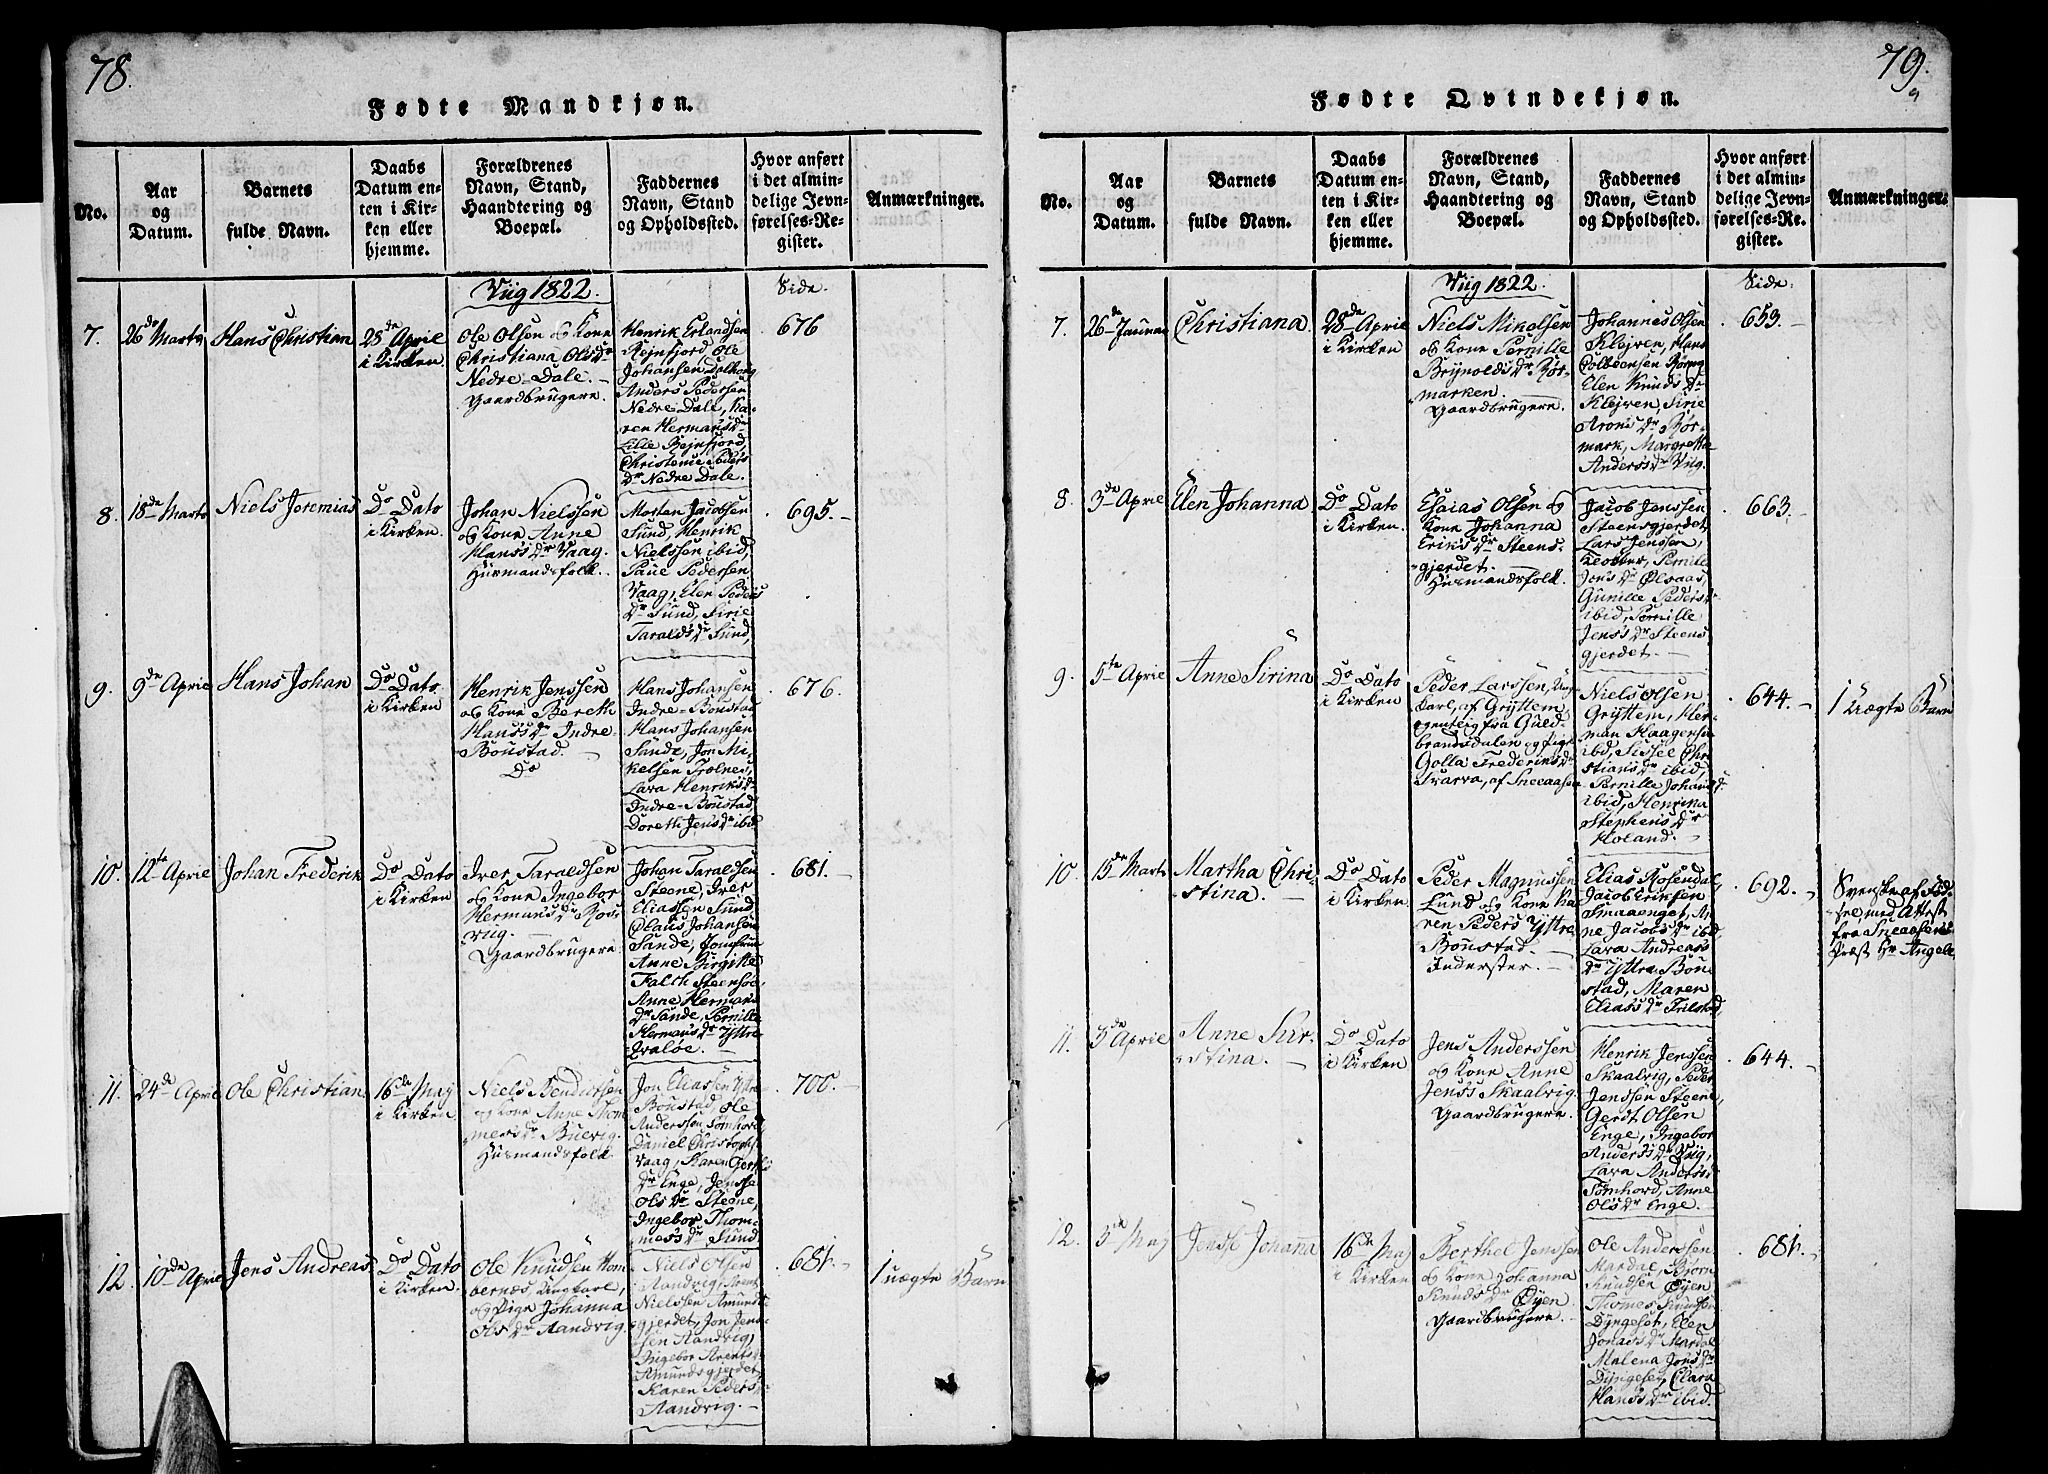 78.
Fødte Mandkjøn.
No.
Aar
og
Datum.
Barnets
fulde Navn.
Daabs
Datum en-
ten i Kir-
ken eller
hjemme.
Forældrenes
Navn, Stand,
Haandtering og
Boepæl.
Faddernes
Navn, Stand
og Opholdssted.
Hvor anført
i det almin-
delige Jevn-
førelses-Re-
gister.
Anmærkninger.
Viig 1822.
Side.
7.
26de Marts
Hans Christian
28de April
i Kirken
Ole Olsen og Kone
Christiana Olsdr
Nedre-Dale.
Gaardbrugere.
Henrik Erlandsen
Rejnfjord, Ole
Johansen Dalhoug
Anders Pedersen
Nedre Dale, Ka-
ren Hermansdr
Lille Rejnfjord,
Christense Peders
Dr Nedre Dale.
676
8.
18de Marts
Niels Jeremias
Do Dato
i Kirken.
Johan Nielssen
og Kone Anne
Hans's Dr Vaag.
Huusmandsfolk.
Morten Jacobsen
Sund, Henrik
Nielssen ibid,
Paul Pedersen
Vaag, Elen Peders
Dr Sund, Sirie
Taralds Dr Sund,
695.
9.
9de April
Hans Johan
Do Dato
i Kirken
Henrik Jenssen
og Kone Bereth
Hans's Dr Indre
Boustad.
Do
Hans Johansen
Indre-Boustad
Hans Johansen
Sande, Jon Mi-
kelsen Trolnes,
Lava Henriksdr
Indre-Boustad,
Doreth Jens Dr ibid
676.
10.
12te April
Johan Frederik
Do Dato
i Kirken
Iver Taraldsen
og Kone Ingebor
Hermans Dr Ros
viig.
Gaardbrugere
Johan Taraldsen
Steene, Iver
Eliassen Sund
Claus Johansen
Sande, Jomfrue
Anne Birgitte
Falch Steensøe
Anne Hermans
Dr Sande, Pernille
Hermans Dr Yttre
Qvaløe.
681.
11.
24de April
Ole Christian
16de May
i Kirken
Niels Bendictsen
og Kone Anne Thom
mes's Dr Buevig.
Huusmandsfolk
Jon Eliassen Yttre
Boustad, Ole
Anderssen Somhord,
Daniel Christophs
Vaag, Karen Gerts
Dr Enge, Jensse
Ols Dr Steene,
Ingebor Thom-
mes's Dr Sund.
700.
12.
10de April
Jens Andreas
Do Dato
i Kirken.
Ole Knudsen Hom
bernæs, Ungkarl,
og Pige Johanna
Ols Dr Aandvig.
Niels Olsen
Aandvig, Arent
Nielssen Amunds
gjerdet, Jon Jens-
sen Aandvig,
Ingebor Arents
Amundsgjerdet,
Karen Peders
Aandvig.
681.
1 uægte Barn
79.
Fødte Qvindekjøn.
No.
Aar
og
Datum.
Barnets
fulde Navn.
Daabs
Datum en-
ten i Kir-
ken eller
hjemme.
Forældrenes
Navn, Stand,
Haandtering og
Boepæl.
Faddernes
Navn, Stand
og Opholdssted.
Hvor anført
i det almin-
delige Jevn-
førelses-Re-
gister.
Anmærkninger.
Viig 1822.
Side.
7.
26de Januar
Christiana
28de April
i Kirken
Niels Mikelsen
og Kone Pernille
Brynolds Dr Bør-
marken.
Gaardbrugere.
Johannes Olsen
Klejven, Hans
Elen Knuds Dr
Klejven, Sirie
Arons Dr Bør-
mark, Margrethe
Anders's Dr Viig.
653.
8.
3de April
Elen Johanna
Do Dato
i Kirken.
Esaias Olsen og
Kone Johanna
Eriks Dr Steens-
gjerdet.
Huusmandsfolk.
Jacob Jenssen
Steensgjerdet,
Lars Jenssen,
Kloster, Pernille
Jons Dr Ølsaas,
Gunille Peders Dr
ibid, Pernille
Jens's Dr Steens
gjerdet.
663.
9.
5te April
Anne Sirina
Do Dato
i Kirken.
Peder Larssen, Ung
karl, af Gryttem,
egentlig fra Guld-
brandsdalen og Pige
Golla Frederiks Dr
Svarva, af Sneeaasen
Niels Olsen
Gryttem, Her-
man Haagensen
ibd, Sissel Chri-
stians Dr ibid,
Pernille Johans Dr
ibid, Henrina
Stephens Dr
Holand.
644.
1 Uægte Barn
10.
15de Marts
Martha Chri-
stina.
Do Dato
i Kirken.
Peder Magnussen
Lund og Kone Ka-
ren Peders Yttre
Boustad.
Inderster.
Elias Rosendal,
Jacob Eriksen
Smaaenget, An-
ne Jacobs Dr ibid
Lava Andreas's
Dr Yttre Bou
stad, Maren
Elias's Dr Trilstad
692.
Svenske af Fød-
sel med Attest
fra Sneaasens
Præst Hr Angell
11.
5de April
Anne Kir-
stina.
Do Dato
i Kirken
Jens Anderssen
og Kone Anne
Jens's Skaalvig.
Gaardbrugere.
Henrik Jenssen
Skaalvig, Peder
Jenssen Steene,
Gerdt Olsen
Enge, Ingebor
Anders Dr Viig,
Lava Anders's
Somhord, Anne
Ols Dr Enge.
644.
12.
5te May
Jensse Johanna
16de May
i Kirken
Berthel Jenssen
og Kone Johanna
Knuds Dr Øyen
Gaardbrugere.
Ole Anderssen
Mardal, Bjørn
Knudsen Øyen
Thomes Knudsen
Dyngeset, Elen
Jonas's Dr Mardal
Malena Jons Dr
Dyngeset, Clara
Hans's Dr ibid.
681.